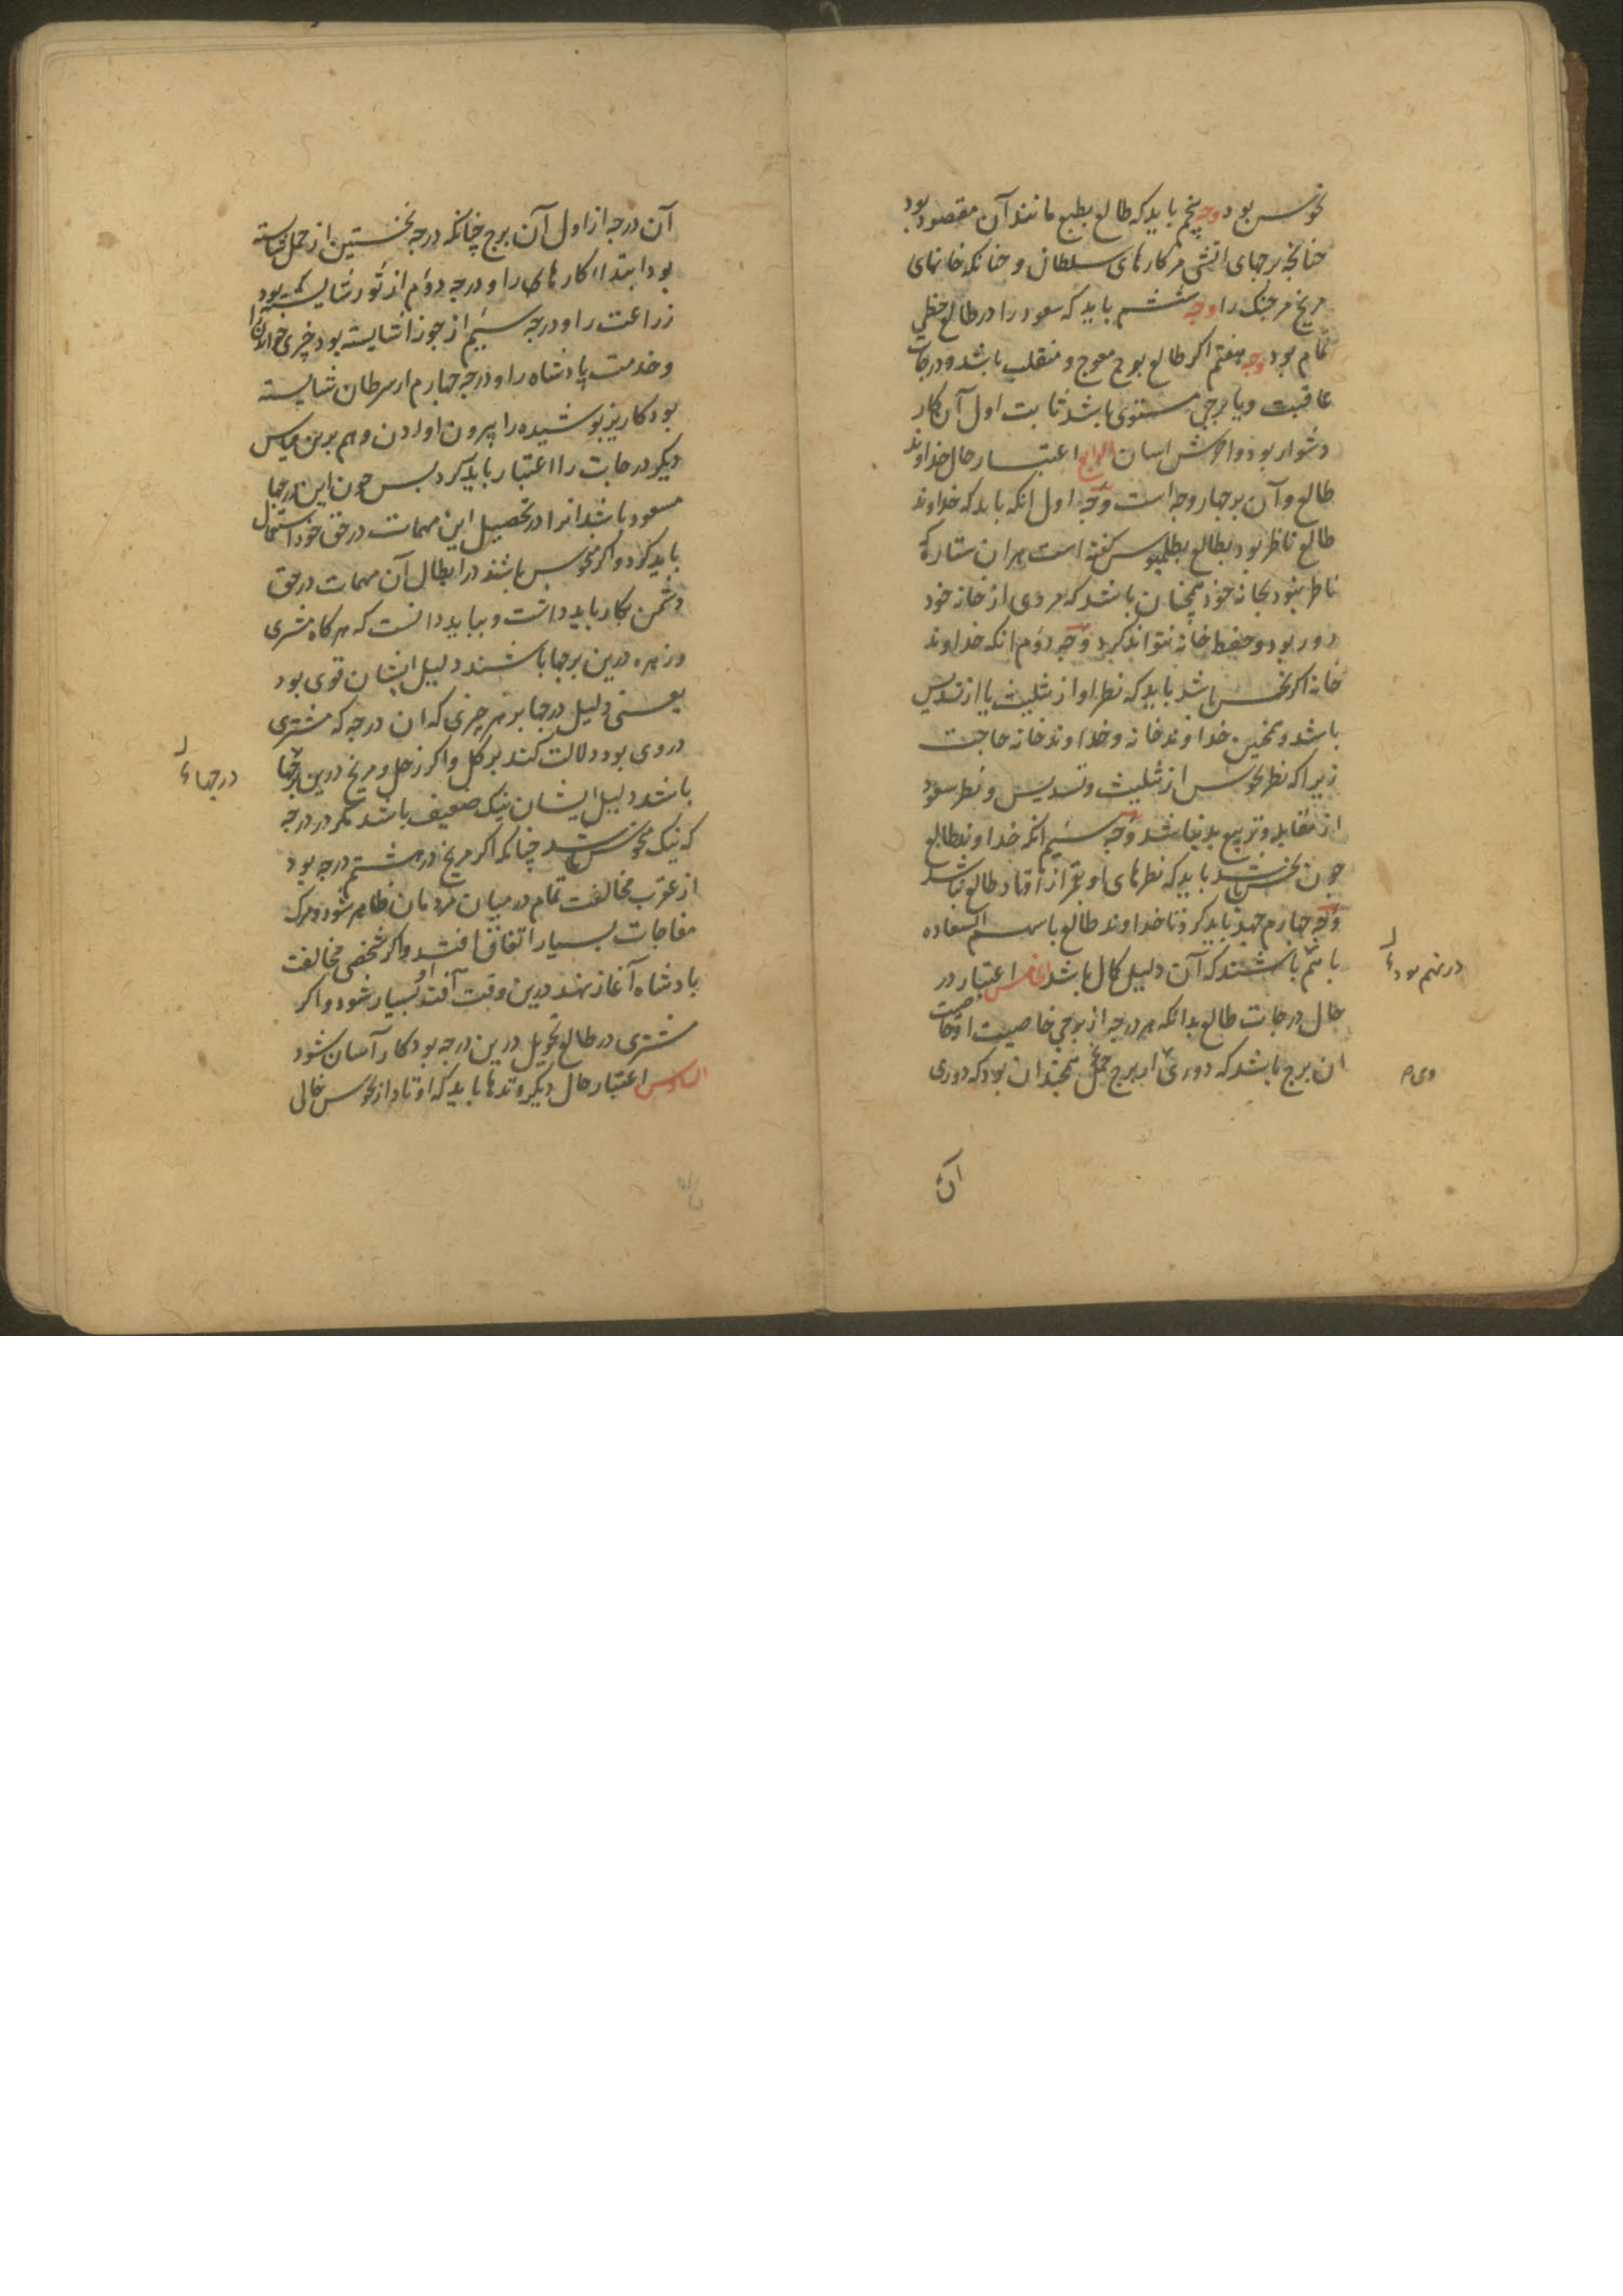 نحوس بود وجه پنجم باید که طالع بطبع مانند آن مقصود بود
چنانچه برجهای اتشی مر کارهای سلطان و چنانکه خانهای
مریخ مر جنک را وجه ششم باید که سعود را در طالع حظی
تمام بود وجه هفتم اکر طالع برج معوج و منقلب باشد و درجات
عاقبت و یا برجی مستوی باشد ثابت اول آن کار
دشوار بود و اخرش اسان الرابع اعتبار حال خداوند
طالع و آن بر چهار وجه است وجه اول انکه باید که خداوند
طالع ناظر بود بطالع بطلمیوس کفته است هر ان ستاره که
ناظر نبود بخانه خود همچنان باشد که مردی از خانه خود
دور بود و حفظ خانه نتواند کرد وجه دوم انکه خداوند
خانه اکر نحس باشد باید که نظر او از تثلیث یا از تسدیس
باشد و همچنین خداوند خانه و خداوند خانه حاجت
زیرا که نظر نحوس از تثلیث و تسدیس و نظر سعود
از مقابله و تربیع بد نباشد وجه سیم انکه خداوند طالع
چون نحس باشد باید که نظرهای او بقمر از اوتاد طالع نباشد
وجه چهارم جهد باید کرد تا خداوند طالع با سهم السعاده
باهم باشند که آن دلیل کمال باشد الخامس اعتبار در
حال درجات طالع بدانکه هر درجه از برجی خاصیت او خاصیت
ان برج باشد که دوری از برج حمل همچندان بود که دوری
در نهم بود
وی م
آن
آن درجه از اول آن برج چنانکه درجه نخستین از حمل شایسته
بود ابتداا کارهای را و درجه دوم از ثور شایسته بود
زراعت را و درجه سیم از جوزا شایسته بود چیزی خواندن را
و خدمت پادشاه را و درجه چهارم از سرطان شایسته
بود کاریز پوشیده را بیرون اوردن و هم برین قیاس
دیکر درجات را اعتبار باید کرد بس چون این درجها
مسعود باشد انرا در تحصیل این مهمات در حق خود استعمال
باید کرد و اکر منحوس باشند در ابطال آن مهمات در حق
دشمن بکار باید داشت و بباید دانست که هر کاه مشری
و زهره درین برجها باشند دلیل ایشان قوی بود
یعنی دلیل درجها بر هر چیزی که ان درجه که مشتری
در وی بود دلالت کند بر کل و اکر زحل و مریخ درین برجها
باشد دلیل ایشان نیک ضعیف باشد مکر در درجه
که نیک منحوس باشد چنانکه اکر مریخ در هشتم درجه بود
از عقرب مخالفت تمام در میان مردمان ظاهر شود و مرک
مفاجات بسیار اتفاق افتد و اکر شخصی مخالفت
پادشاه آغاز نهد درین وقت آفت او بسیار شود و اکر
مشتری در طالع تحویل درین درجه بود کار آسان شود
السادس اعتبار حال دیکر وتدها باید که اوتاد از نحوس خالی
درجهاء